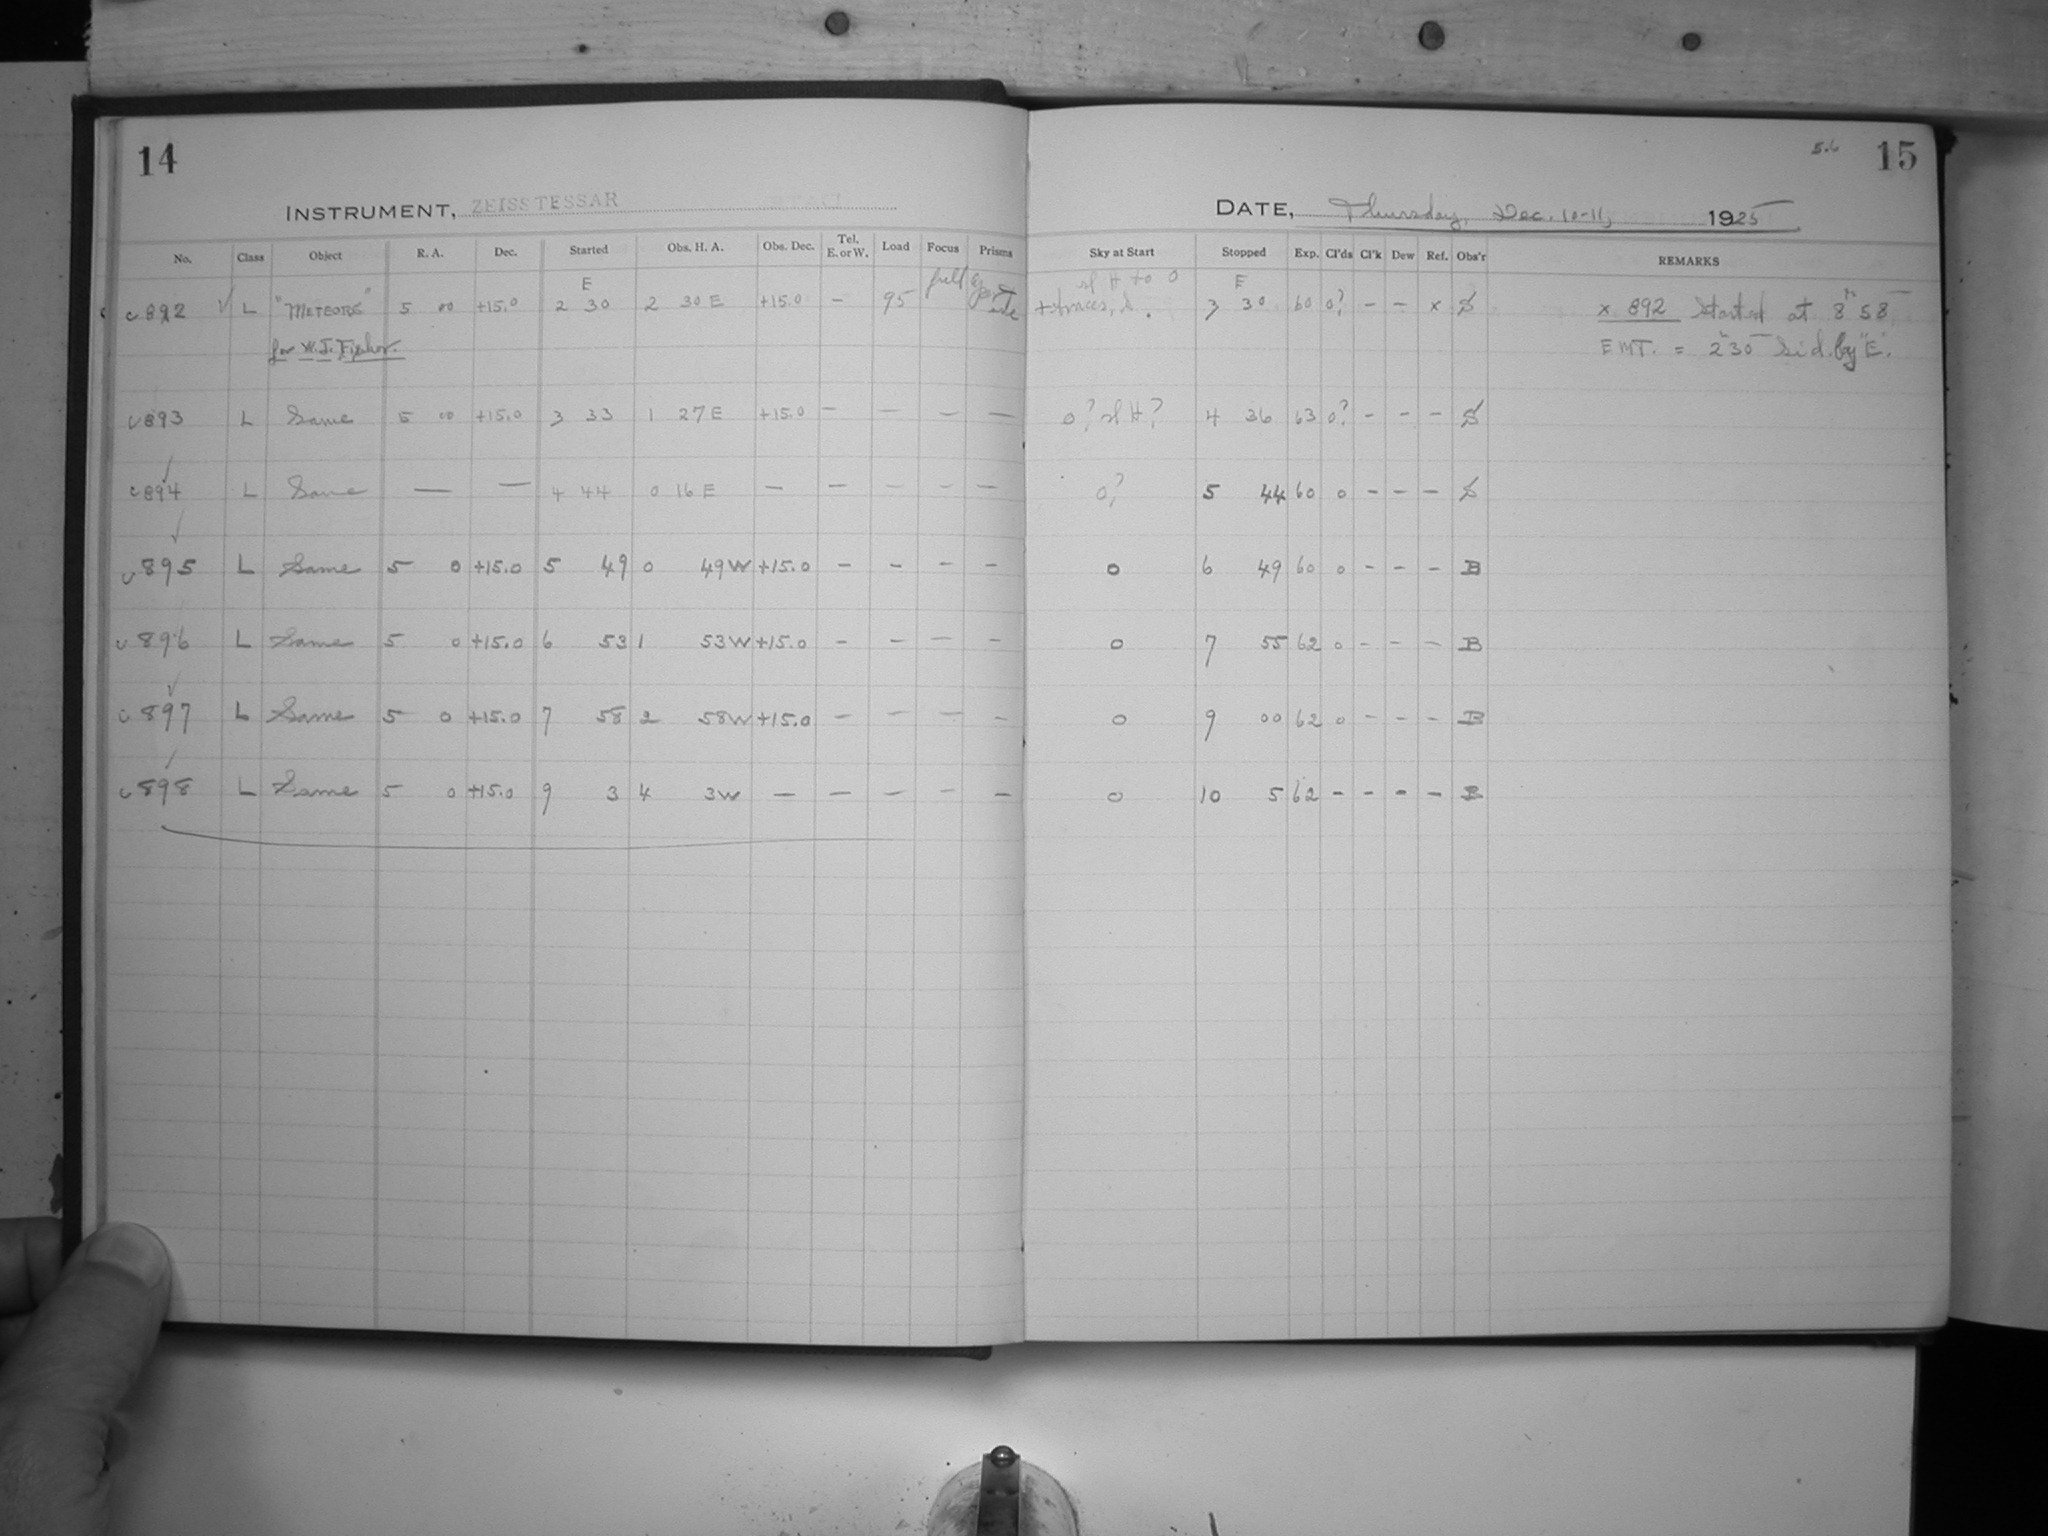 14
INSTRUMENT, ZEISS TESSAR
No. Class Object R. A. Dec. Started Obs. H. A. Obs. Dec. Tel. E. or W. Load Focus Prisms
E
c892 √ L "METEORS" 5 00 +15.0 2 30 2 30 E +15.0 – 95 full
for W. J. Fisher.
c893 L Same 5 00 +15.0 3 33 1 27 E +15.0 – – – –
c894 L Same — — 4 44 0 16 E – – – – –
c895 L Same 5 0 +15.0 5 49 0 49W +15.0 – – – –
c896 L Same 5 0 +15.0 6 53 1 53W +15.0 – – – –
c897 L Same 5 0 +15.0 7 58 2 58W +15.0 – – – –
c898 L Same 5 0 +15.0 9 3 4 3W – – – – –
5.6 15
DATE, Thursday, Dec. 10-11, 1925
Sky at Start Stopped Exp. Cl'ds Cl'k Dew Ref. Obs'r REMARKS
sl H to 0 E
3 30 60 0? – – x S x 892 started at 8h 58
EMT. = 2h 30 sid. by "E".
0? sl H? 4 36 63 0? – – – S
0? 5 44 60 0 – – – S
0 6 49 60 0 – – – B
0 7 55 62 0 – – – B
0 9 00 62 0 – – – B
0 10 5 62 – – – – B